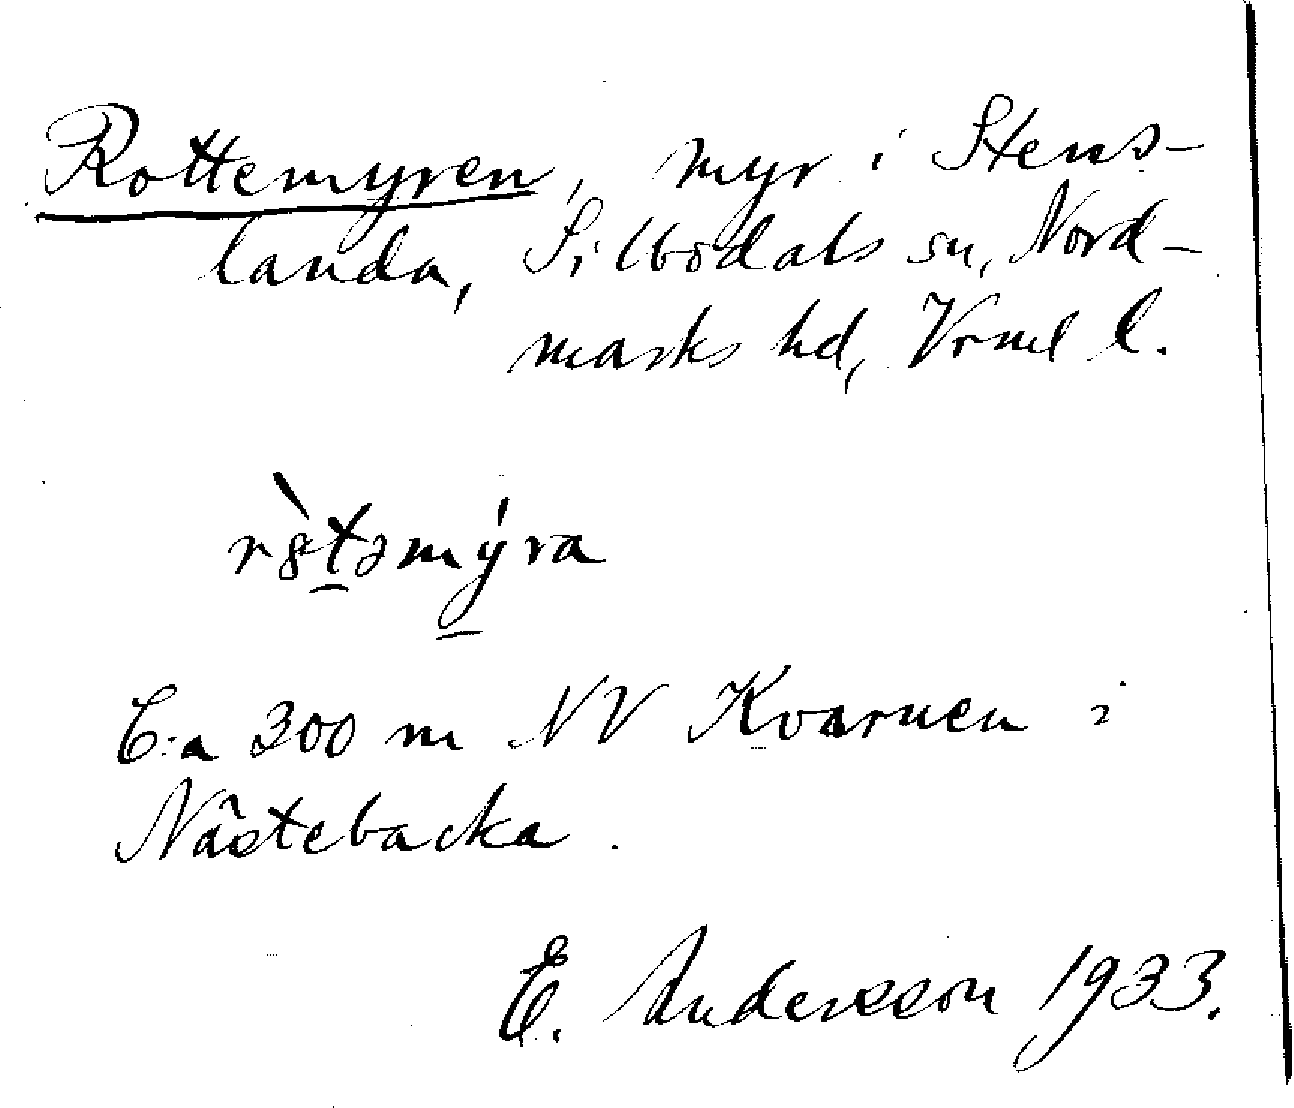 Rottemyren, myr i Stens-
landa, Silbodals sn, Nord-
marks hd, Vrml l.
r8̀t̲əmý̲ra
C:a 300 m NV Kvarnen i
Nästebacka.
E. Andersson 1933.